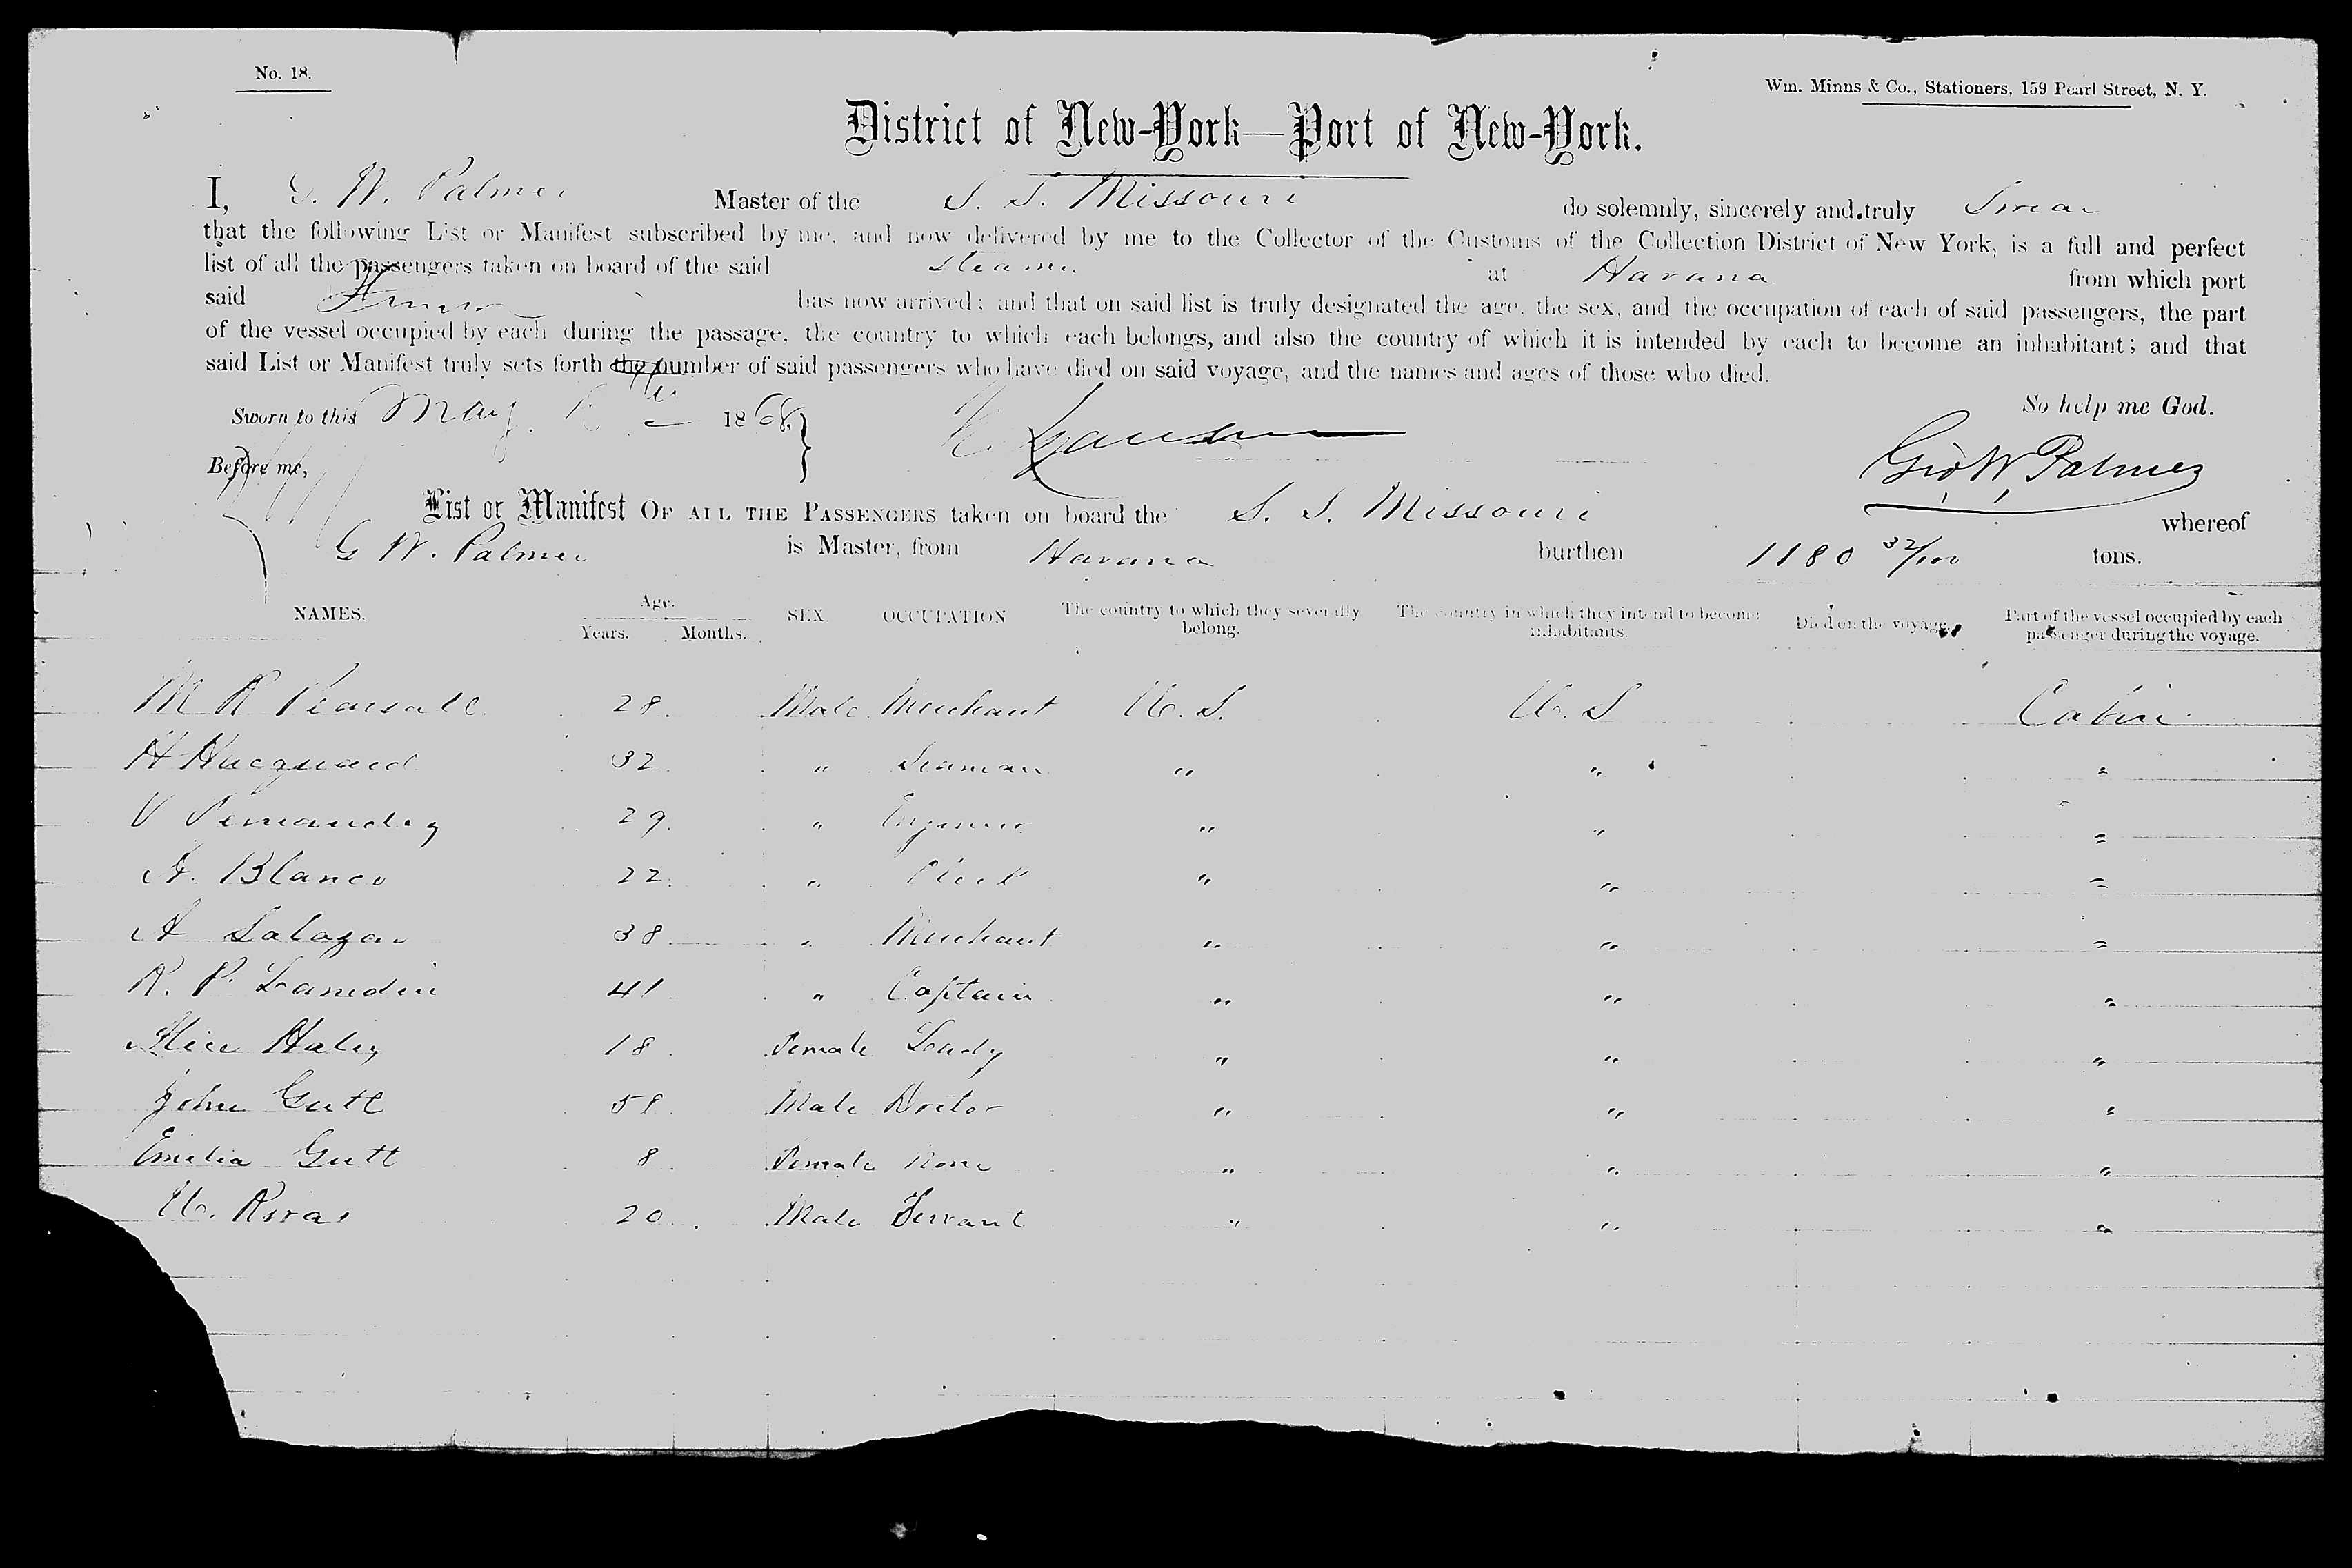 No. 18.
Wm. Minns & Co., Stationers, 159 Pearl Street, N. Y.
District of New-York—Port of New-York.
I, G. W. Palmer Master of the S. S. Missouri do solemnly, sincerely and truly Swear
that the following List or Manifest subscribed by me, and now delivered by me to the Collector of the Customs of the Collection District of New York, is a full and perfect
list of all the passengers taken on board of the said Steamer at Havana from which port
said has now arrived; and that on said list is truly designated the age, the sex, and the occupation of each of said passengers, the part
of the vessel occupied by each during the passage, the country to which each belongs, and also the country of which it is intended by each to become an inhabitant; and that
said List or Manifest truly sets forth the number of said passengers who have died on said voyage, and the names and ages of those who died.
So help me God.
Sworn to this May 1868
Before me,
Geo W. Palmer
List or Manifest OF ALL THE PASSENGERS taken on board the S. S. Missouri whereof
G W. Palmer is Master, from Havana burthen 1180 32/100 tons.
NAMES. Age. Years. Months. SEX. OCCUPATION The country to which they severally belong. The country in which they intend to become inhabitants. Died on the voyage. Part of the vessel occupied by each passenger during the voyage.
M R Pearsall 28 Male Merchant U. S. U. S Cabin
H Hacquard 32 " Seaman " " "
V Fernandez 29 " Engineer " " "
A. Blanco 22 " Clerk " " "
A Salazar 38 " Merchant " " "
R. P. Lamdin 41 " Captain " " "
Alice Haley 18 Female Lady " " "
John Gutt 58 Male Doctor " " "
Emelia Gutt 8 Female None " " "
U. Rivas 20 Male Servant " " "